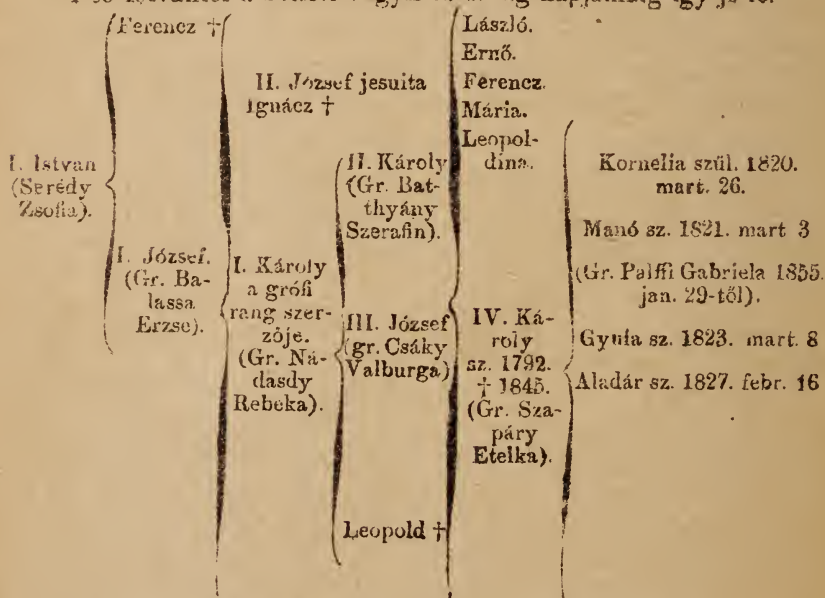 Ferencz †
I. Istvan
(Serédy
Zsofia).
I. József.
(Gr. Ba-
lassa
Erzse).
II. József jesuita
Ignácz †
I. Károly
a grófi
rang szer-
zője.
(Gr. Ná-
dasdy
Rebeka).
II. Károly
(Gr. Bat-
thyány
Szerafin).
III. József
(gr. Csáky
Valburga)
Leopold †
László.
Ernő.
Ferencz.
Mária.
Leopol-
dina.
IV. Ká-
roly
sz. 1792.
† 1845.
(Gr. Sza-
páry
Etelka).
Kornelia szül. 1820.
mart. 26.
Manó sz. 1821. mart 3
(Gr. Palffi Gabriela 1855.
jan. 29-től).
Gyula sz. 1823. mart. 8
Aladár sz. 1827. febr. 16